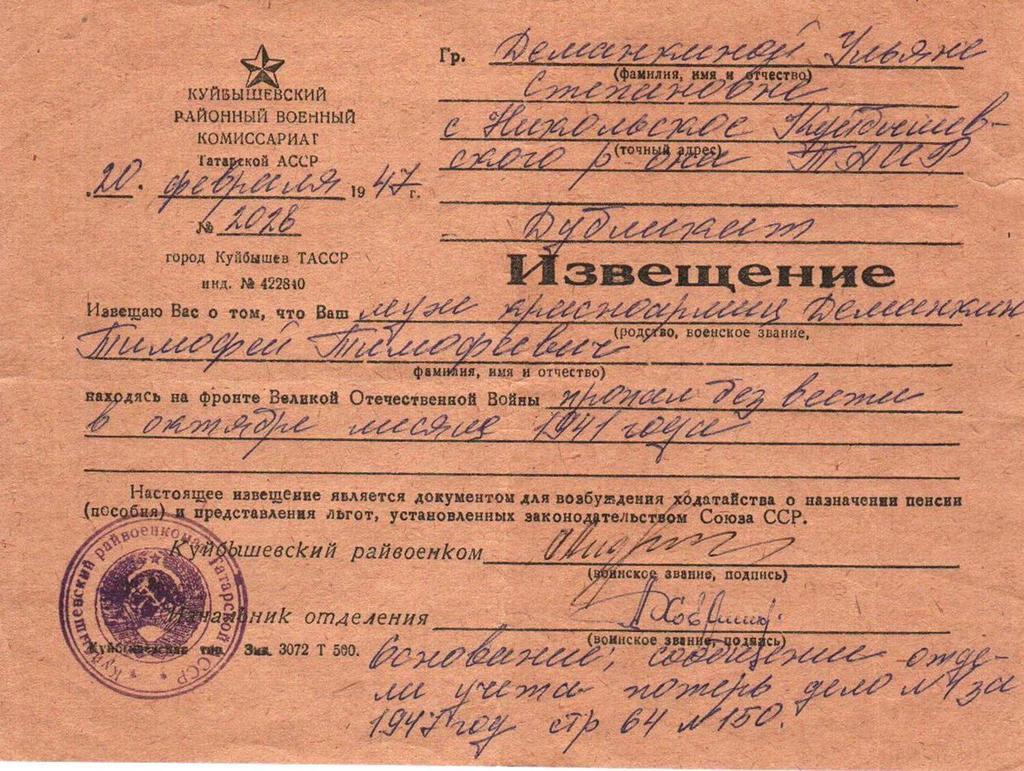 КУЙБЫШЕВСКИЙ
РАЙОННЫЙ ВОЕННЫЙ
КОМИССАРИАТ
Татарской АССР
20. февраля 1947 г.
№ 2028
город Куйбышев ТАССР
инд. № 422840
Гр. Деманкиной Ульяне
(фамилия, имя и отчество)
Степановне
с Никольское Куйбышев-
(точный адрес)
ского р-она ТАССР
Дубликат
Извещение
Извещаю Вас о том, что Ваш муж красноармиец Деманкин
(родство, военское звание,
Тимофей Тимофеевич
фамилия, имя и отчество)
находясь на фронте Великой Отечественной Войны пропал без вести
в октябре месяце 1941 года
Настоящее извещение является документом для возбуждения ходатайства о назначении пенсии
(пособия) и представления льгот, установленных законодательством Союза ССР.
Куйбышевский райвоенком
(воинское звание, подпись)
Начальник отделения
(воинское звание, подпись)
Куйбышевская тип. Зак. 3072 Т 500.
Куйбышевский райвоенкомат Татарской АССР
Основание; сообщение отде-
ла учета потерь дело №1 за
1947 год стр 64 №150.